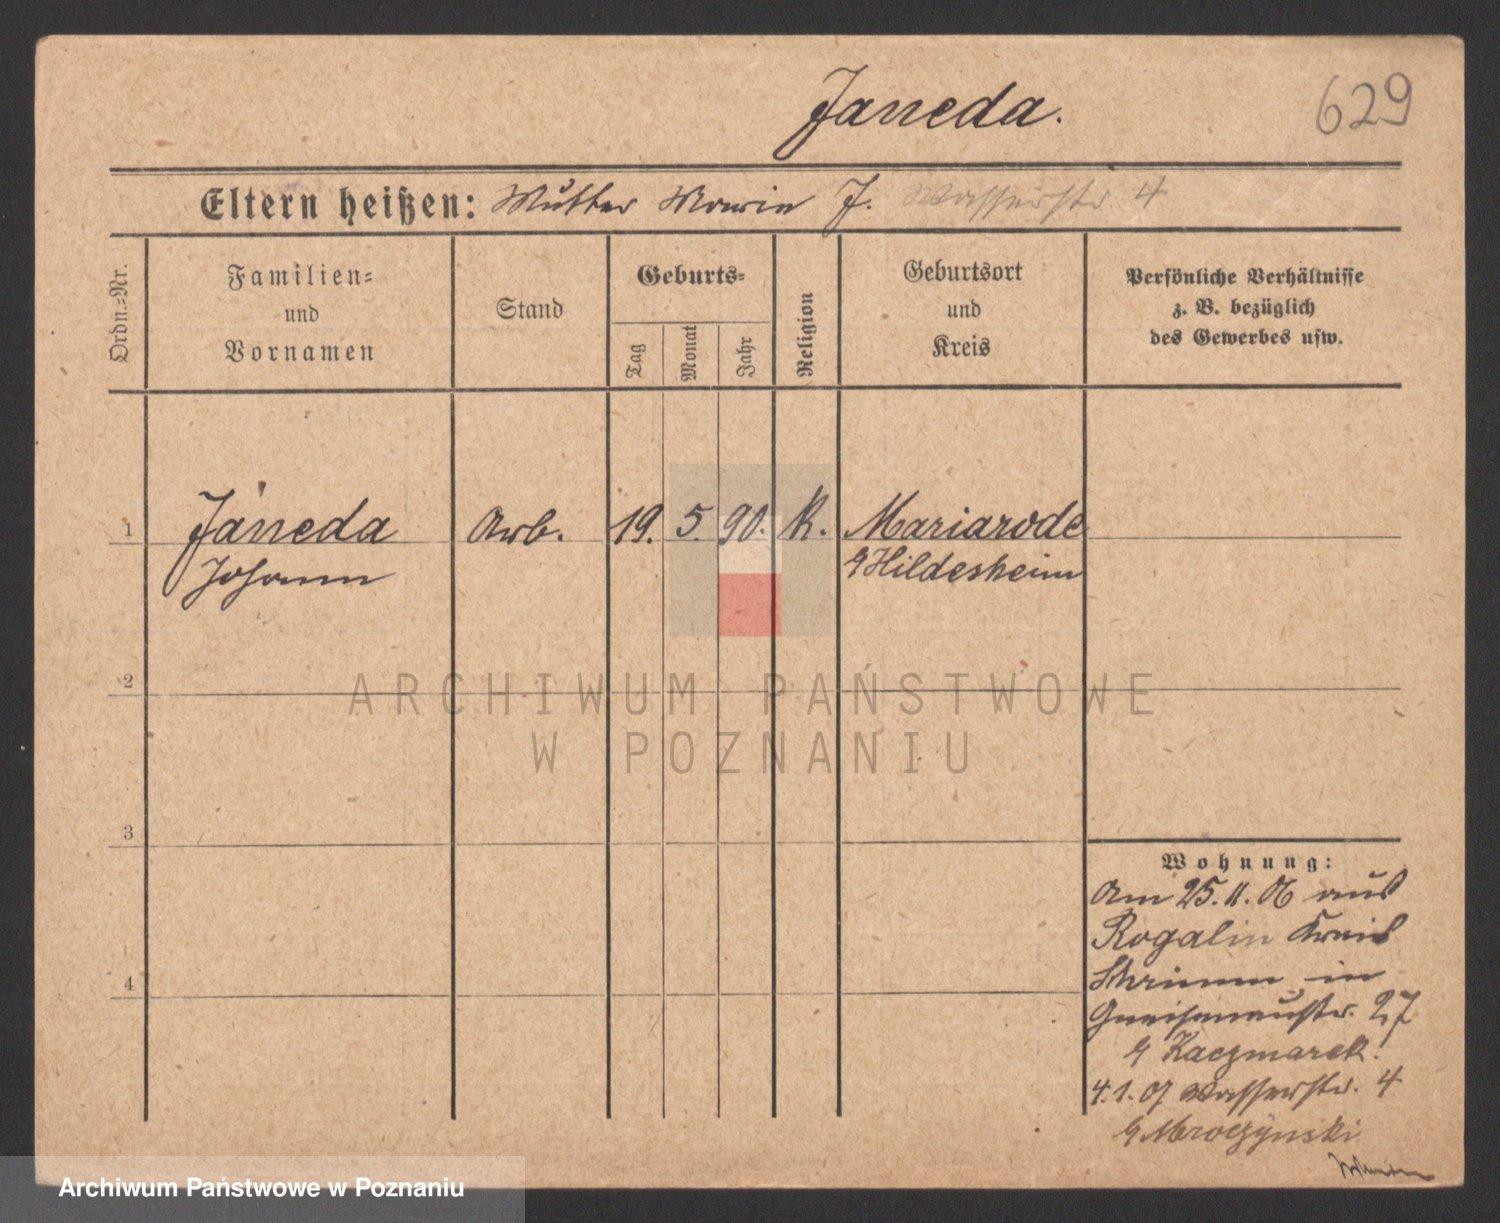 Janeda.
629
Eltern heißen: Mutter Marie J. Wasserstr. 4
Ordn.=Nr.
Familien=
und
Vornamen
Stand
Geburts=
Tag
Monat
Jahr
Religion
Geburtsort
und
Kreis
Persönliche Verhältnisse
z. B. bezüglich
des Gewerbes usw.
1 Janeda Arb. 19. 5. 90. K. Mariarode
Johann Hildesheim
2
3
4
Wohnung:
Am 25.11.06 aus
Rogalin Kreis
Schrimm in
Gneisenaustr. 27
Kaczmarek.
4.1.07 Wasserstr. 4
Mroczynski
ARCHIWUM PAŃSTWOWE
W POZNANIU
Archiwum Państwowe w Poznaniu